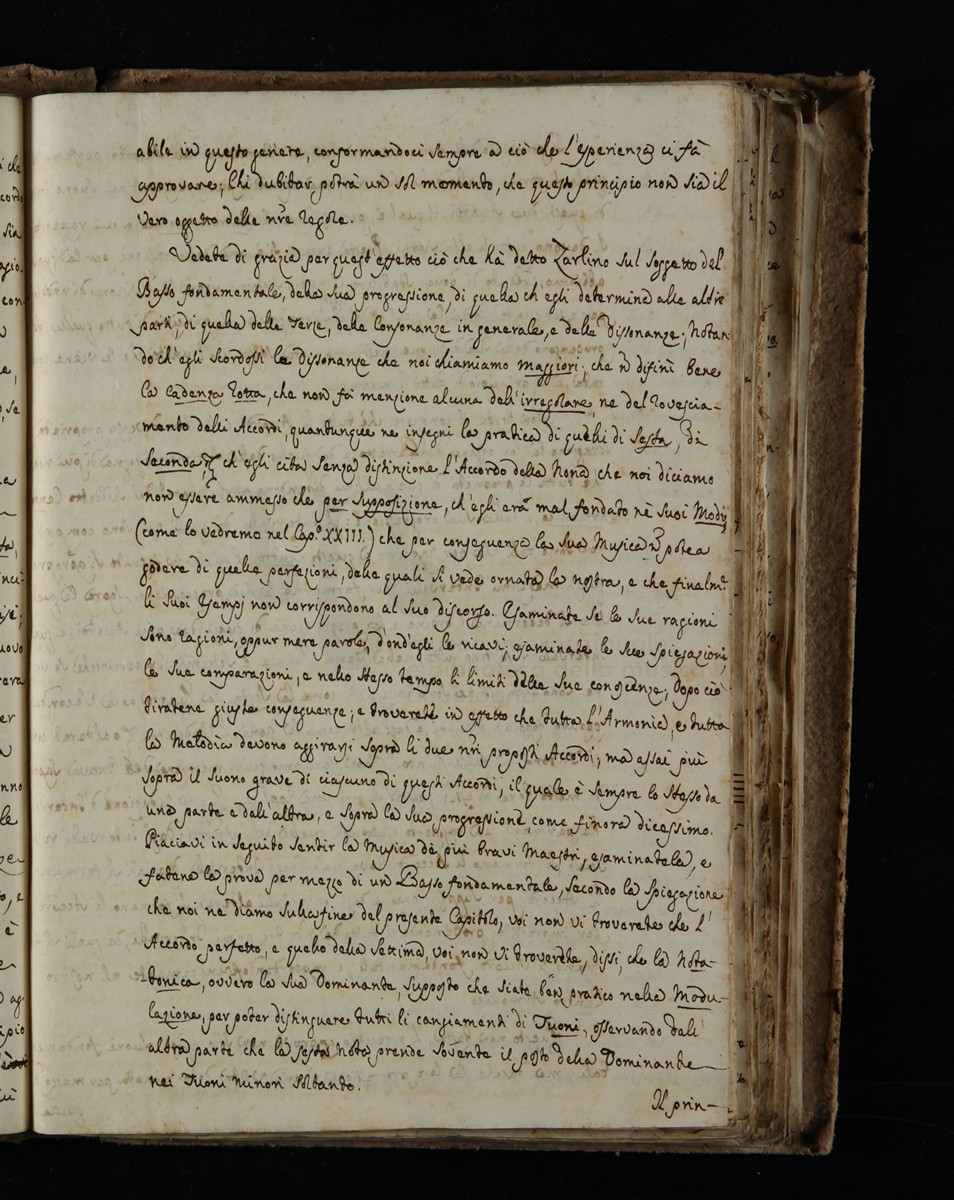 abile in questo genere, conformandoci sempre a ciò che l'esperienza ci fà
approvare; Chi dubitar potrà un sol momento, che questo principio non sia il
vero oggetto delle nr̃e regole.
Vedete di grazia per quest'effetto ciò che hà detto Zarlino sul soggetto del
Basso fondamentale, della sua progressione, di quella ch'egli determina alle altre
parti, di quella delle Terze, delle Consonanze in generale, e delle Dissonanze; Notan
do ch'egli scordossi le Dissonanze che noi chiamiamo maggiori; che ñ difinì bene
la Cadenza rotta, che non fà menzione alcuna dell'irregolare, ne del rovescia-
mento delli Accordi, quantunque ne insegni la pratica di quelli di Sesta, di
Seconda, ch'egli cita senza distinzione l'Accordo della Nona che noi diciamo
non essere ammesso che per supposizione, ch'egli erà mal fondato nè suoi Modi
(come lo vedremo nel Cap.º XXIII.) che per conseguenza la sua Musica ñ potea
godere di quelle perfezioni, delle quali si vede ornata la nostra, e che finalm.te
li suoi Esempj non corrispondono al suo discorso. Esaminate se le sue ragioni
sono ragioni, oppur mere parole, d'ond'egli le ricavi; esaminate le sue spiegazioni,
le sue comparazioni, e nello stesso tempo li limiti delle sue conoscenze; dopo ciò
tiratene giuste conseguenze; e troverete in effetto che tutta l'Armonia, e tutta
la Melodia devono aggirarsi soprà li due nr̃i proposti Accordi; mà assai più
soprà il suono grave di ciascuno di questi Accordi, il quale è sempre lo stesso da
una parte e dall'altra, e soprà la sua progressione, come finora dicessimo.
Piacciavi in seguito sentir la Musica dè più bravi Maestri, esaminatela, e
fatene la prova per mezzo di un Basso fondamentale, secondo la spiegazione
che noi ne diamo sulla fine del presente Capitolo, voi non vi troverete che l'
Accordo perfetto, e quello della Settima, voi non vi troverete, dissi, che la Nota
tonica, ovvero la sua Dominante, supposto che siate ben pratico nella Modu-
lazione, per poter distinguere tutti li cangiamenti di Tuoni, osservando dall'
altra parte che la sesta Nota prende sovente il posto della Dominante
nei Tuoni minori soltanto.
Il prin-